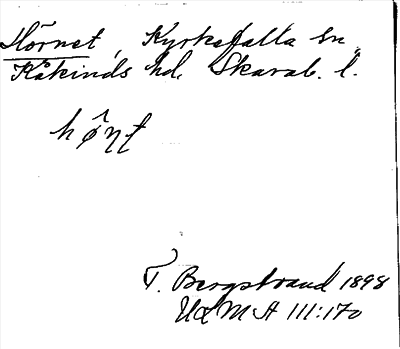 Hörnet, Kyrkefalla sn.,
Kåkinds hd, Skarab. l.
T. Bergstrand 1898
ULMA 111:170